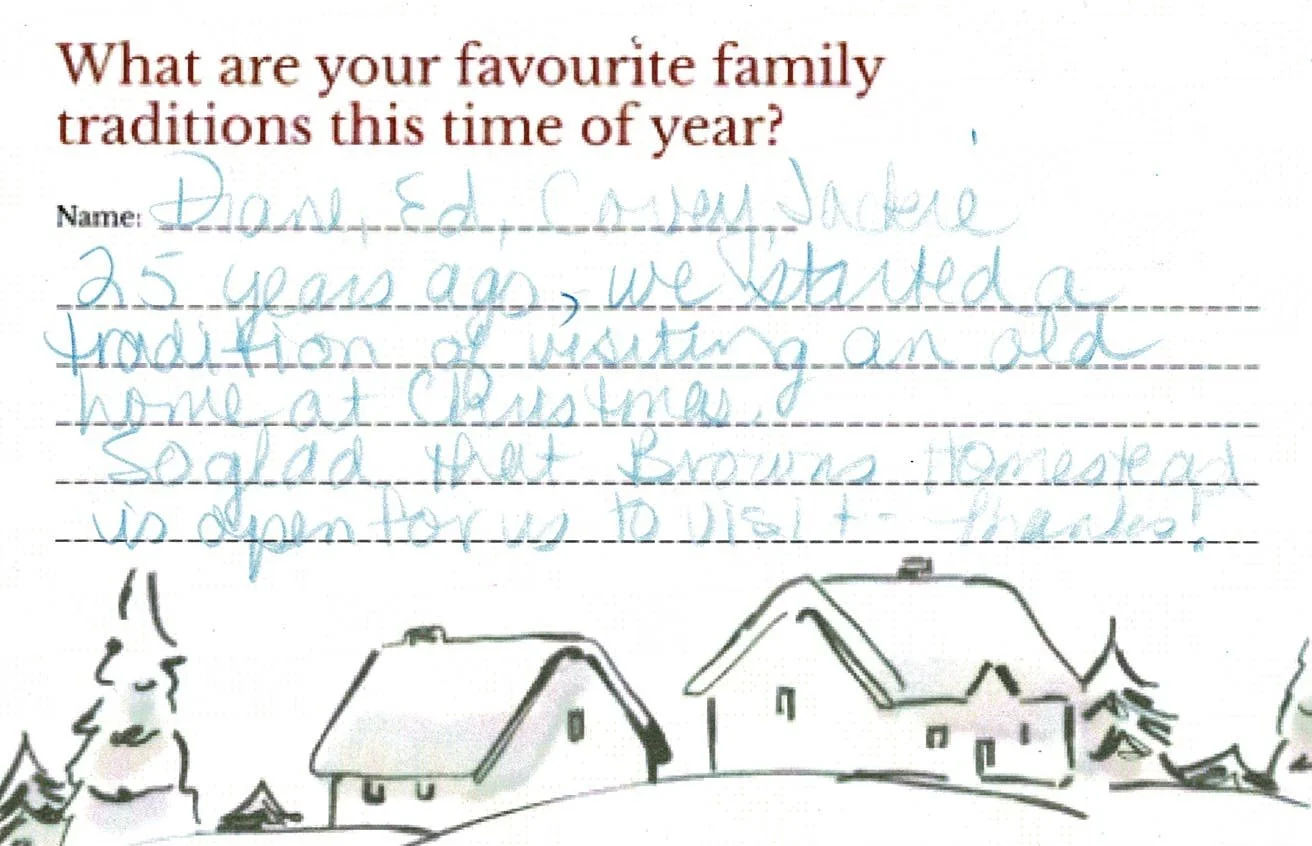 What are your favourite family
traditions this time of year?
Name: Diane, Ed, Corvey, Jackie
25 years ago, we started a
tradition of visiting an old
home at Christmas.
So glad that Browns Homestead
is open for us to visit - thanks!